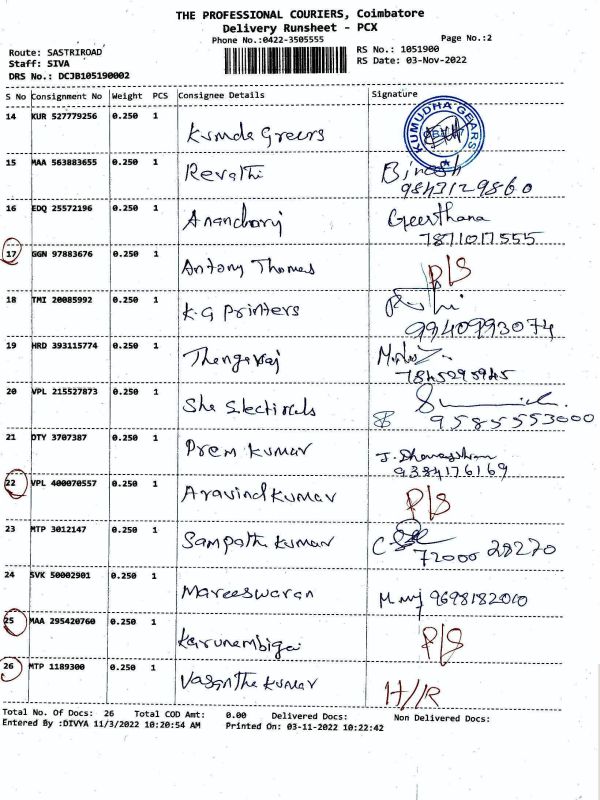 THE PROFESSIONAL COURIERS, Coimbatore
Delivery Runsheet - PCX
Phone No.:0422-3505555 Page No.:2
Route: SASTRIROAD RS No.: 1051900
Staff: SIVA RS Date: 03-Nov-2022
DRS No.: DCJB105190002
S No Consignment No Weight PCS Consignee Details Signature
14 KUR 527779256 0.250 1 Kumda Greers KUMUDHA GEARS
15 MAA 563883655 0.250 1 Revathi Binesh
9843129860
16 EDQ 25572196 0.250 1 Geerthana
7871017555
17 GGN 97883676 0.250 1 Antony Thomas P/S
18 TMI 20085992 0.250 1 K.G Printers
9940993074
19 HRD 393115774 0.250 1 Thengaraj
7845295945
20 VPL 215527873 0.250 1 She Electricals
9585553000
21 DTY 3707387 0.250 1 Prem Kumar J.
9384176169
22 VPL 400070557 0.250 1 Aravind Kumar P/S
23 MTP 3012147 0.250 1 Sampath Kumar
72000 28270
24 SVK 50002901 0.250 1 Mareeswaran 9698182010
25 MAA 295420760 0.250 1 Karunambigai P/S
26 MTP 1189300 0.250 1 Vasantha Kumar H/R
Total No. Of Docs: 26 Total COD Amt: 0.00 Delivered Docs: Non Delivered Docs:
Entered By :DIVYA 11/3/2022 10:20:54 AM Printed On: 03-11-2022 10:22:42